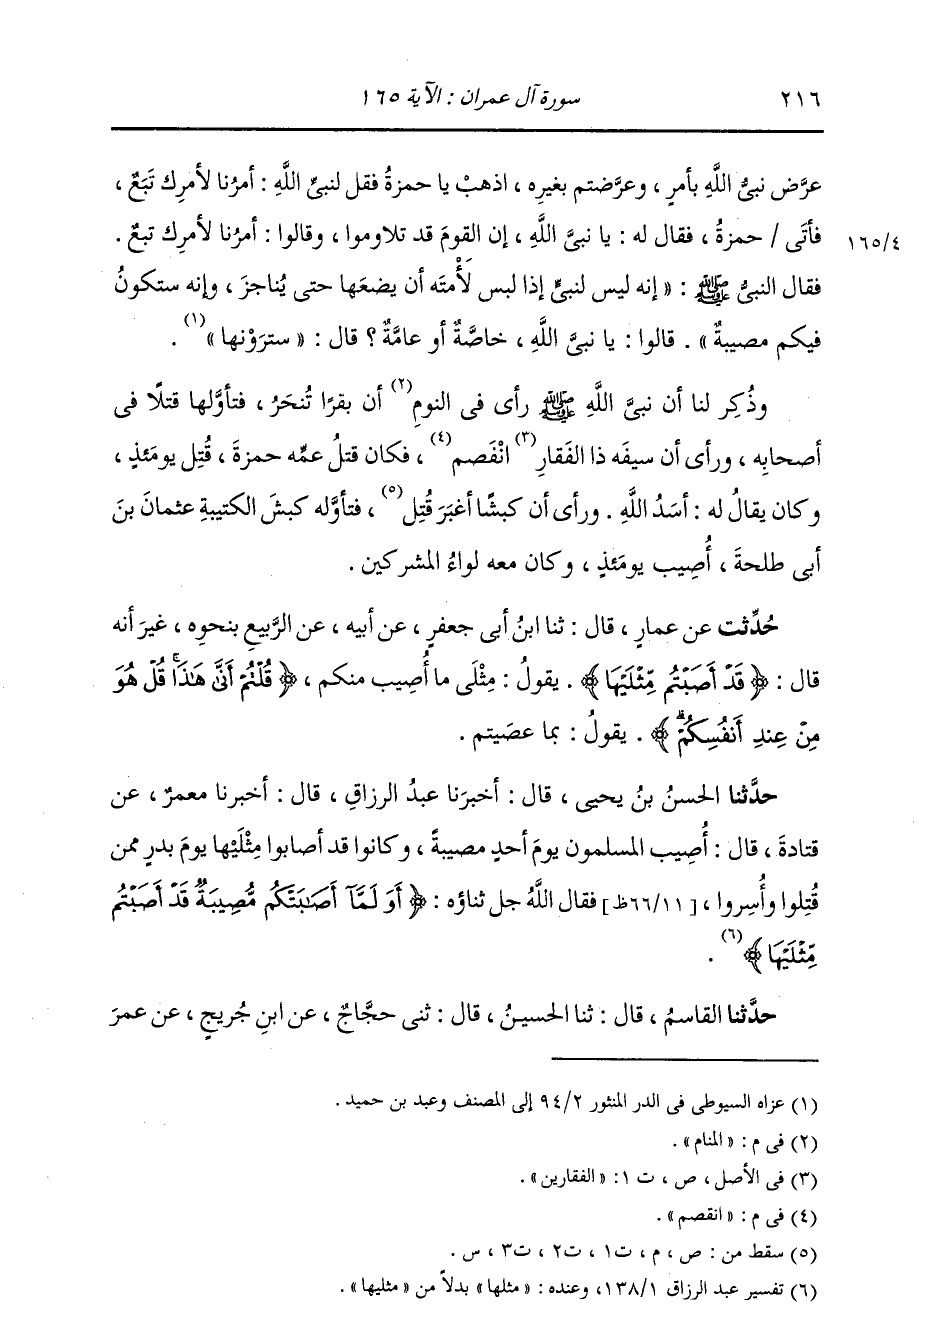 ٢١٦ سورة آل عمران : الآية ١٦٥
عرَّض نبىُّ اللَّهِ بأمرٍ ، وعرَّضتم بغيرِه ، اذهبْ يا حمزةُ فقل لنبىِّ اللَّهِ : أمرُنا لأمرِك تَبَعٌ ،
١٦٥/٤ فأتَى / حمزةُ ، فقال له : يا نبىَّ اللَّهِ ، إن القومَ قد تلاوموا ، وقالوا : أمرُنا لأمرِك تبعٌ .
فقال النبىُّ ﷺ : « إنه ليس لنبىٍّ إذا لبس لَأْمتَه أن يضعَها حتى يُناجزَ ، وإنه ستكونُ
فيكم مصيبةٌ » . قالوا : يا نبىَّ اللَّهِ ، خاصَّةٌ أو عامَّةٌ ؟ قال : « سترَوْنها »(١) .
وذُكِر لنا أن نبىَّ اللَّهِ ﷺ رأى فى النومِ(٢) أن بقرًا تُنحَرُ ، فتأوَّلها قتلًا فى
أصحابِه ، ورأى أن سيفَه ذا الفَقارِ(٣) انْفَصم(٤) ، فكان قتلُ عمِّه حمزةَ ، قُتِل يومَئذٍ ،
وكان يقالُ له : أسَدُ اللَّهِ . ورأى أن كبشًا أغبَرَ قُتِل(٥) ، فتأوَّله كبشَ الكتيبةِ عثمانَ بنَ
أبى طلحةَ ، أُصِيب يومَئذٍ ، وكان معه لواءُ المشركين .
حُدِّثت عن عمارٍ ، قال : ثنا ابنُ أبى جعفرٍ ، عن أبيه ، عن الرَّبيعِ بنحوِه ، غيرَ أنه
قال : ﴿ قَدْ أَصَبْتُم مِّثْلَيْهَا ﴾ . يقولُ : مِثْلَى ما أُصِيب منكم ، ﴿ قُلْتُمْ أَنَّىٰ هَٰذَا ۖ قُلْ هُوَ
مِنْ عِندِ أَنفُسِكُمْ ۗ ﴾ . يقولُ : بما عصَيتم .
حدَّثنا الحسنُ بنُ يحيى ، قال : أخبرَنا عبدُ الرزاقِ ، قال : أخبرنا معمرٌ ، عن
قتادةَ ، قال : أُصِيب المسلمون يومَ أحدٍ مصيبةً ، وكانوا قد أصابوا مِثْلَيْها يومَ بدرٍ ممن
قُتِلوا وأُسِروا ، [٦٦/١١ظ] فقال اللَّهُ جل ثناؤه : ﴿ أَوَ لَمَّآ أَصَٰبَتْكُم مُّصِيبَةٌ قَدْ أَصَبْتُم
مِّثْلَيْهَا ﴾(٦) .
حدَّثنا القاسمُ ، قال : ثنا الحسينُ ، قال : ثنى حجَّاجٌ ، عن ابنِ جُريجٍ ، عن عمرَ
(١) عزاه السيوطى فى الدر المنثور ٩٤/٢ إلى المصنف وعبد بن حميد .
(٢) فى م : « المنام » .
(٣) فى الأصل ، ص ، ت ١ : « الفقارين » .
(٤) فى م : « انقصم » .
(٥) سقط من : ص ، م ، ت١ ، ت٢ ، ت٣ ، س .
(٦) تفسير عبد الرزاق ١٣٨/١ ، وعنده : « مثلها » بدلاً من « مثليها » .